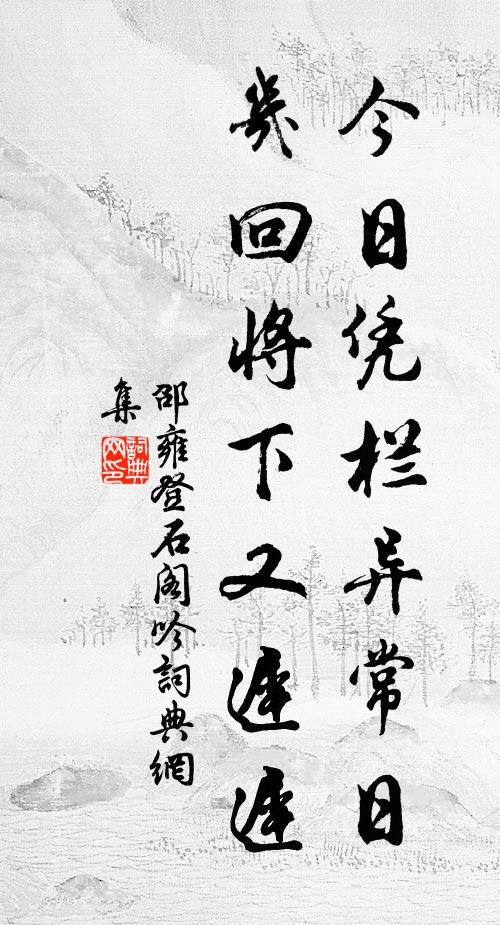 今日凭栏异常日
几回将下又迟迟
邵雍登石阁吟词典網
集
詞典网印